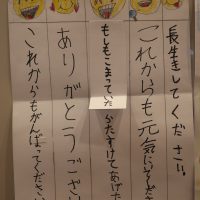 長生きしてください。
これからも元気にそだ
もしもこまっていたらたすけてあげ
ありがとうござい
これからもがんばってください